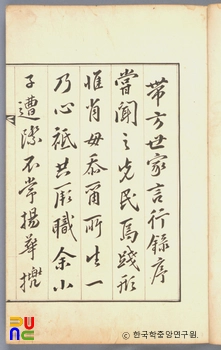 帶方世家言行錄序
嘗聞之先民焉踐形
惟肖毋忝爾所生一
乃心祗共厥職余小
子遭際不掌揚華攬
PUNC
© 한국학중앙연구원.